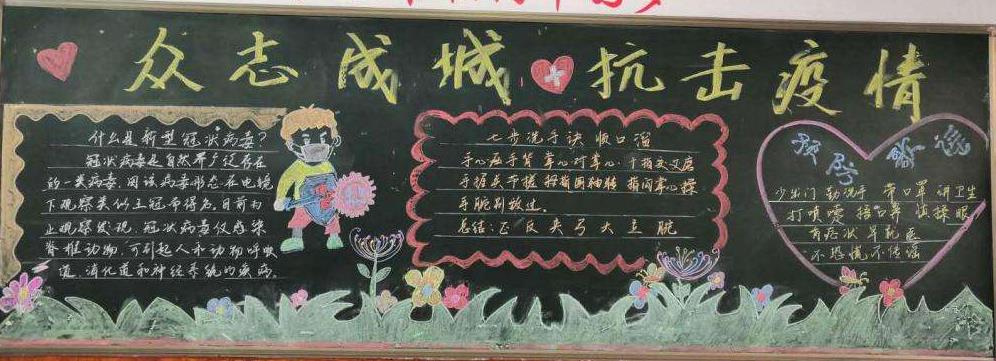 众志成城 抗击疫情
什么是新型冠状病毒?
冠状病毒是自然界广泛存在
的一类病毒,因该病毒形态在电镜
下观察类似王冠而得名。目前为
止观察发现,冠状病毒仅感染
脊椎动物,可引起人和动物呼吸
道、消化道和神经系统的疾病。
七步洗手诀 顺口溜
手心手背 掌心对掌心 十指交叉磨
手握关节搓 拇指围轴转 指间掌心揉
手腕别放过。
总结:正反夹弓大立腕
预防
少出门 勤洗手 常口罩 讲卫生
打喷嚏 捂口罩 慎揉眼
有症状 早就医
不恐慌不传谣